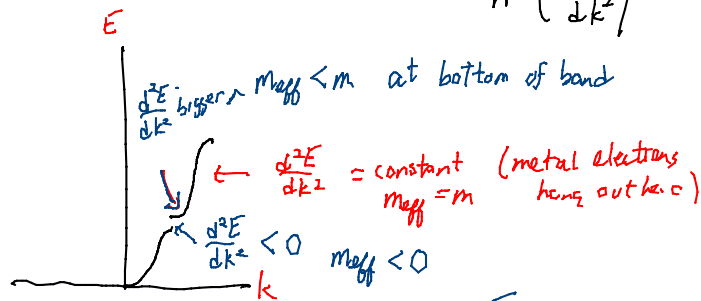 dk²
E
d²E/dk² bigger, m_eff < m at bottom of band
d²E/dk² = constant (metal electrons
m_eff = m hang out here)
d²E/dk² < 0 m_eff < 0
k